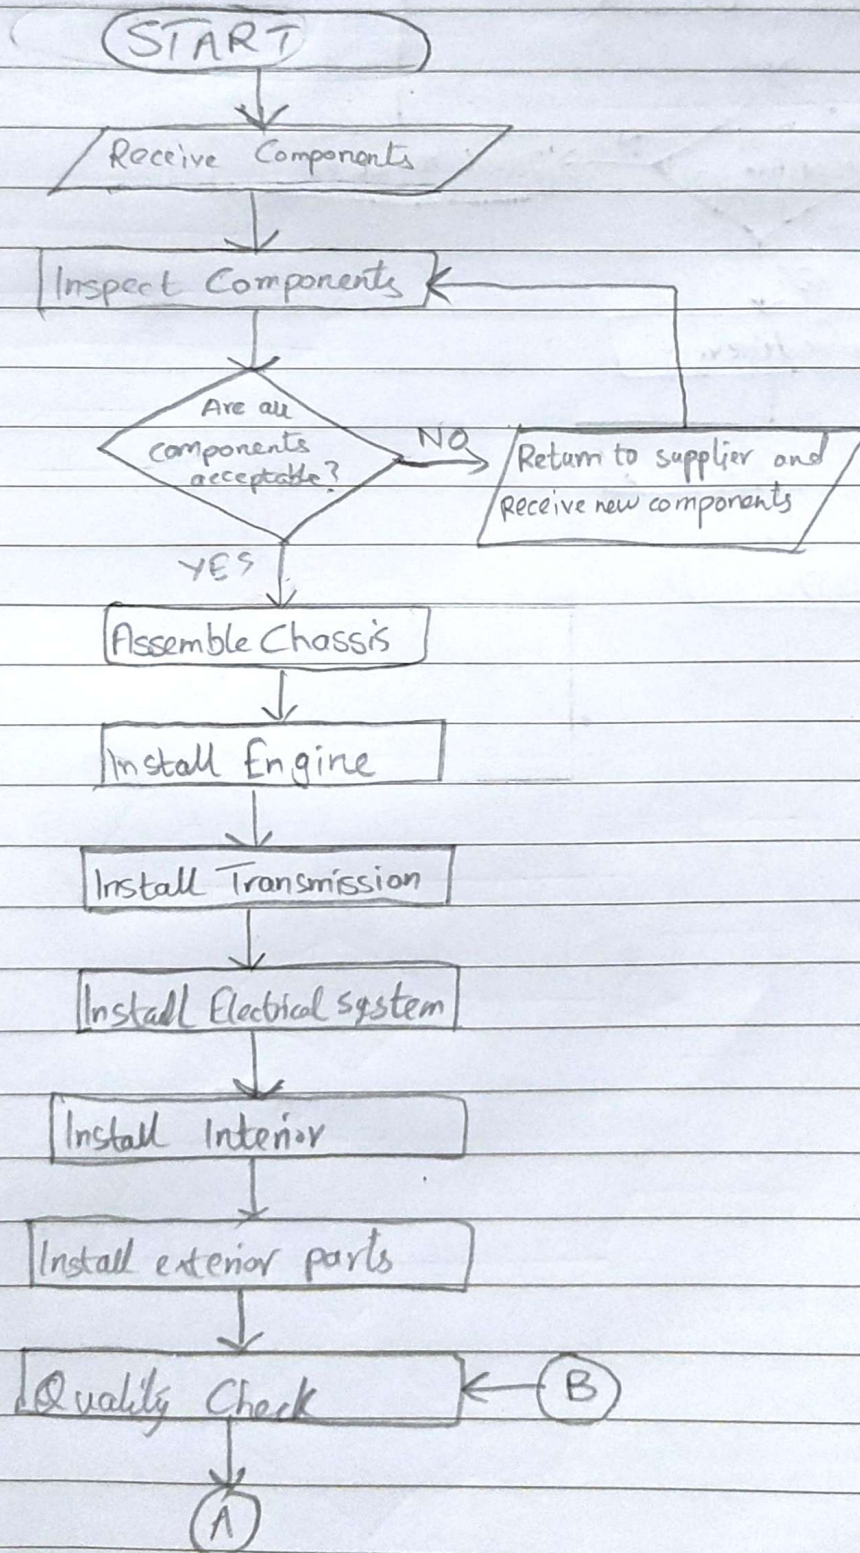 START
Receive Components
Inspect Components
Are all
components
acceptable?
NO
Return to supplier and
Receive new components
YES
Assemble Chassis
Install Engine
Install Transmission
Install Electrical system
Install Interior
Install exterior parts
Quality Check
B
A